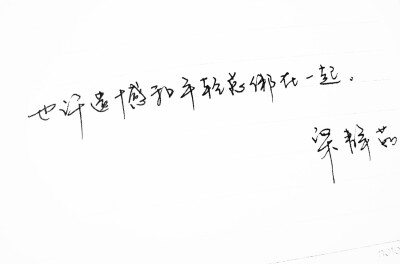 也许遗憾和年轻总绑在一起。
梁静茹